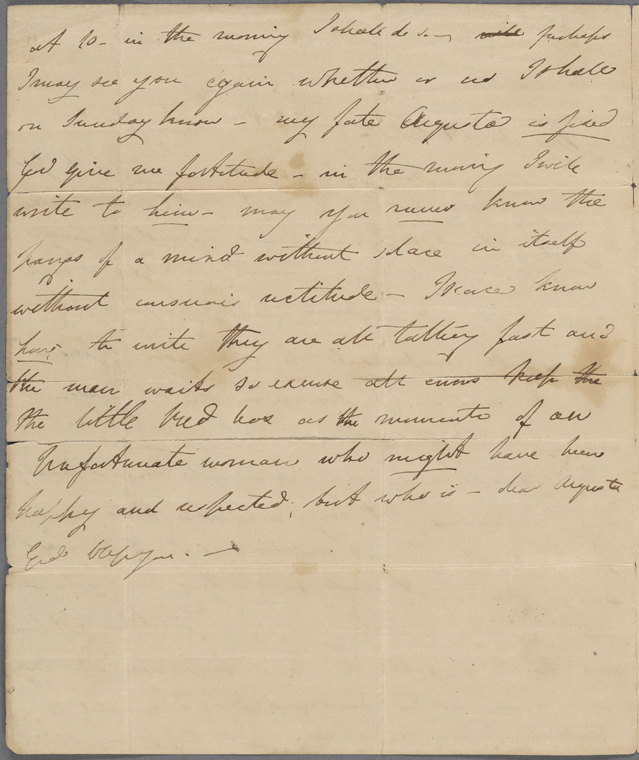 at 10 - in the morning I shall do so - will perhaps
I may see you again whether or no I shall
on Sunday know - my fate Augusta is fixed
God give me fortitude - in the morning I will
write to him - may you never know the
pangs of a mind without solace in itself
without conscious rectitude - I scarce know
how to write they are all talking fast and
the man waits so excuse all errors keep the
the little bred box as the momento of an
Unfortunate woman who might have been
happy and respected, but who is - dear Augusta
God bless you. -